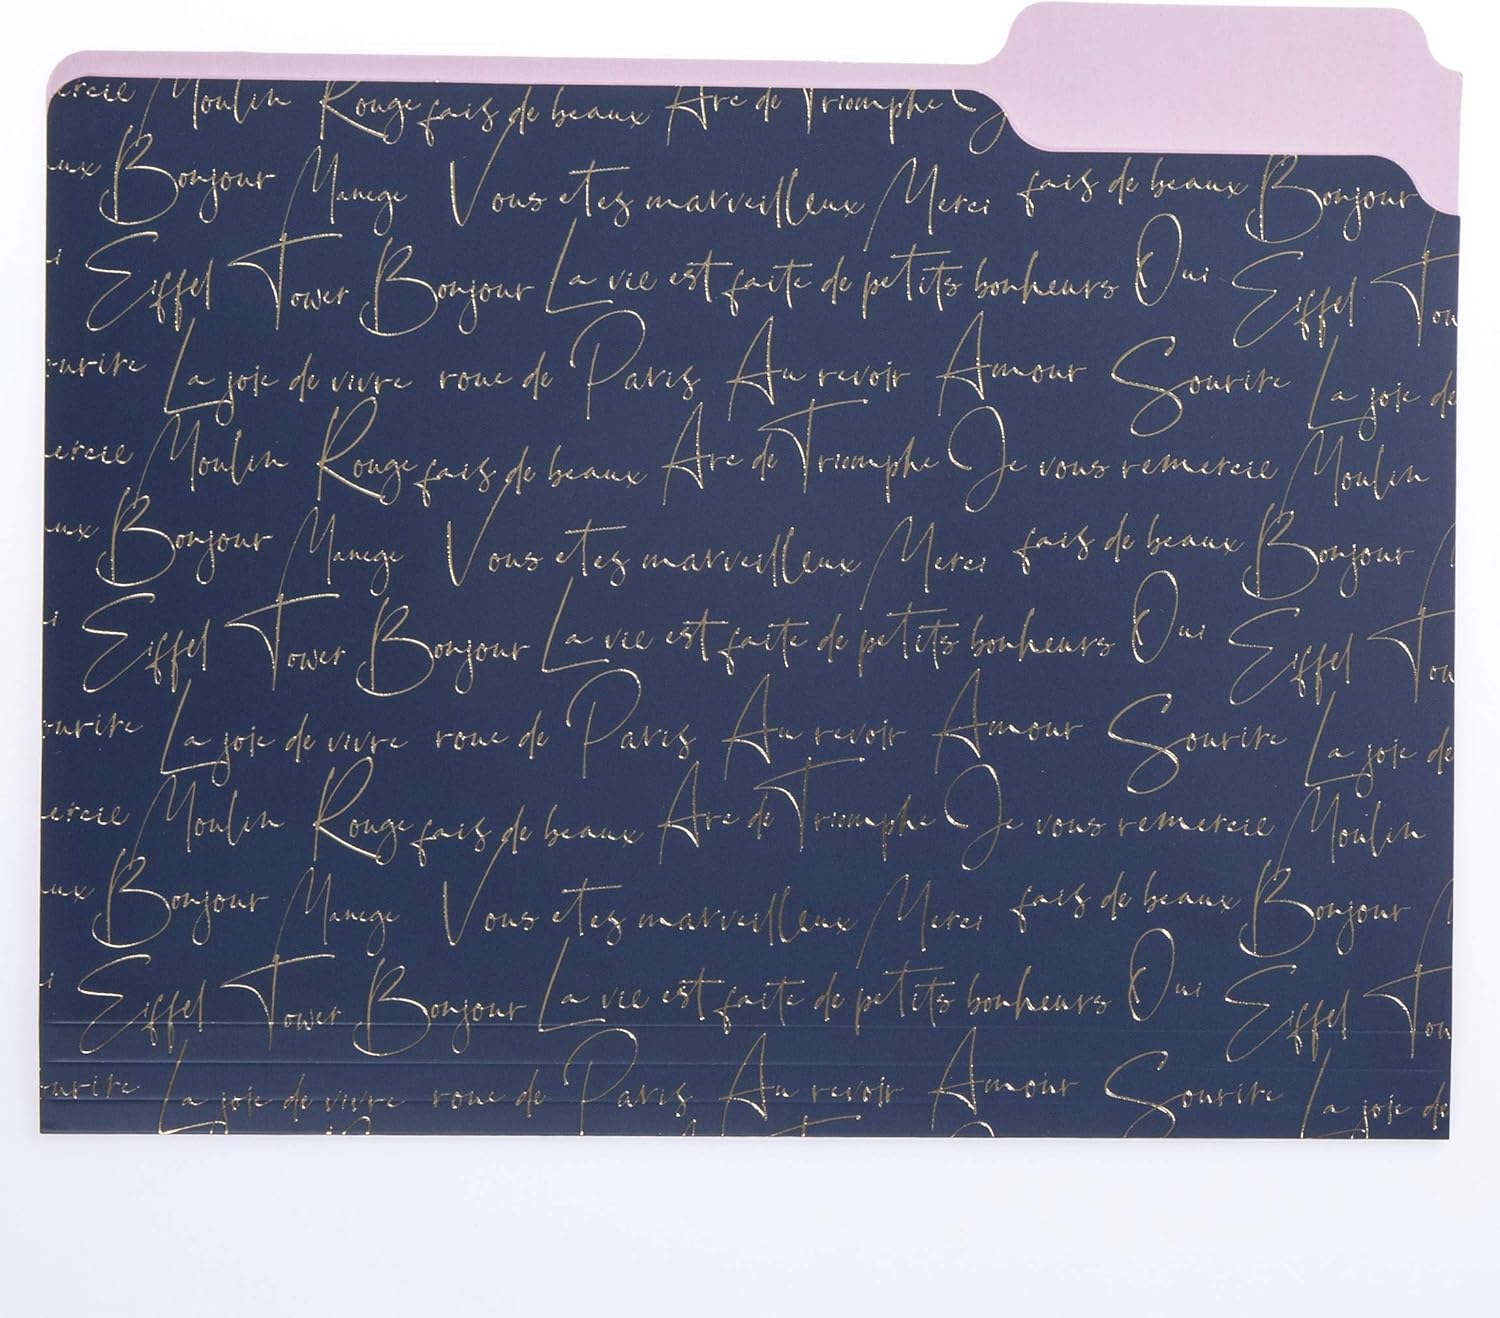 Moulin Rouge fais de beaux Arc de Triomphe J
Bonjour Manege Vous etes marveilleux Merci fais de beaux Bonjour
Eiffel Tower Bonjour La vie est faite de petits bonheurs Oui Eiffel Tow
ourire La joie de vivre roue de Paris Au revoir Amour Sourire La joie de
ercie Moulin Rouge fais de beaux Arc de Triomphe Je vous remercie Moulin
aux Bonjour Manege Vous etes marveilleux Merci fais de beaux Bonjour
Eiffel Tower Bonjour La vie est faite de petits bonheurs Oui Eiffel Tow
ourire La joie de vivre roue de Paris Au revoir Amour Sourire La joie de
ercie Moulin Rouge fais de beaux Arc de Triomphe Je vous remercie Moulin
aux Bonjour Manege Vous etes marveilleux Merci fais de beaux Bonjour
Eiffel Tower Bonjour La vie est faite de petits bonheurs Oui Eiffel Tow
ourire La joie de vivre roue de Paris Au revoir Amour Sourire La joie de